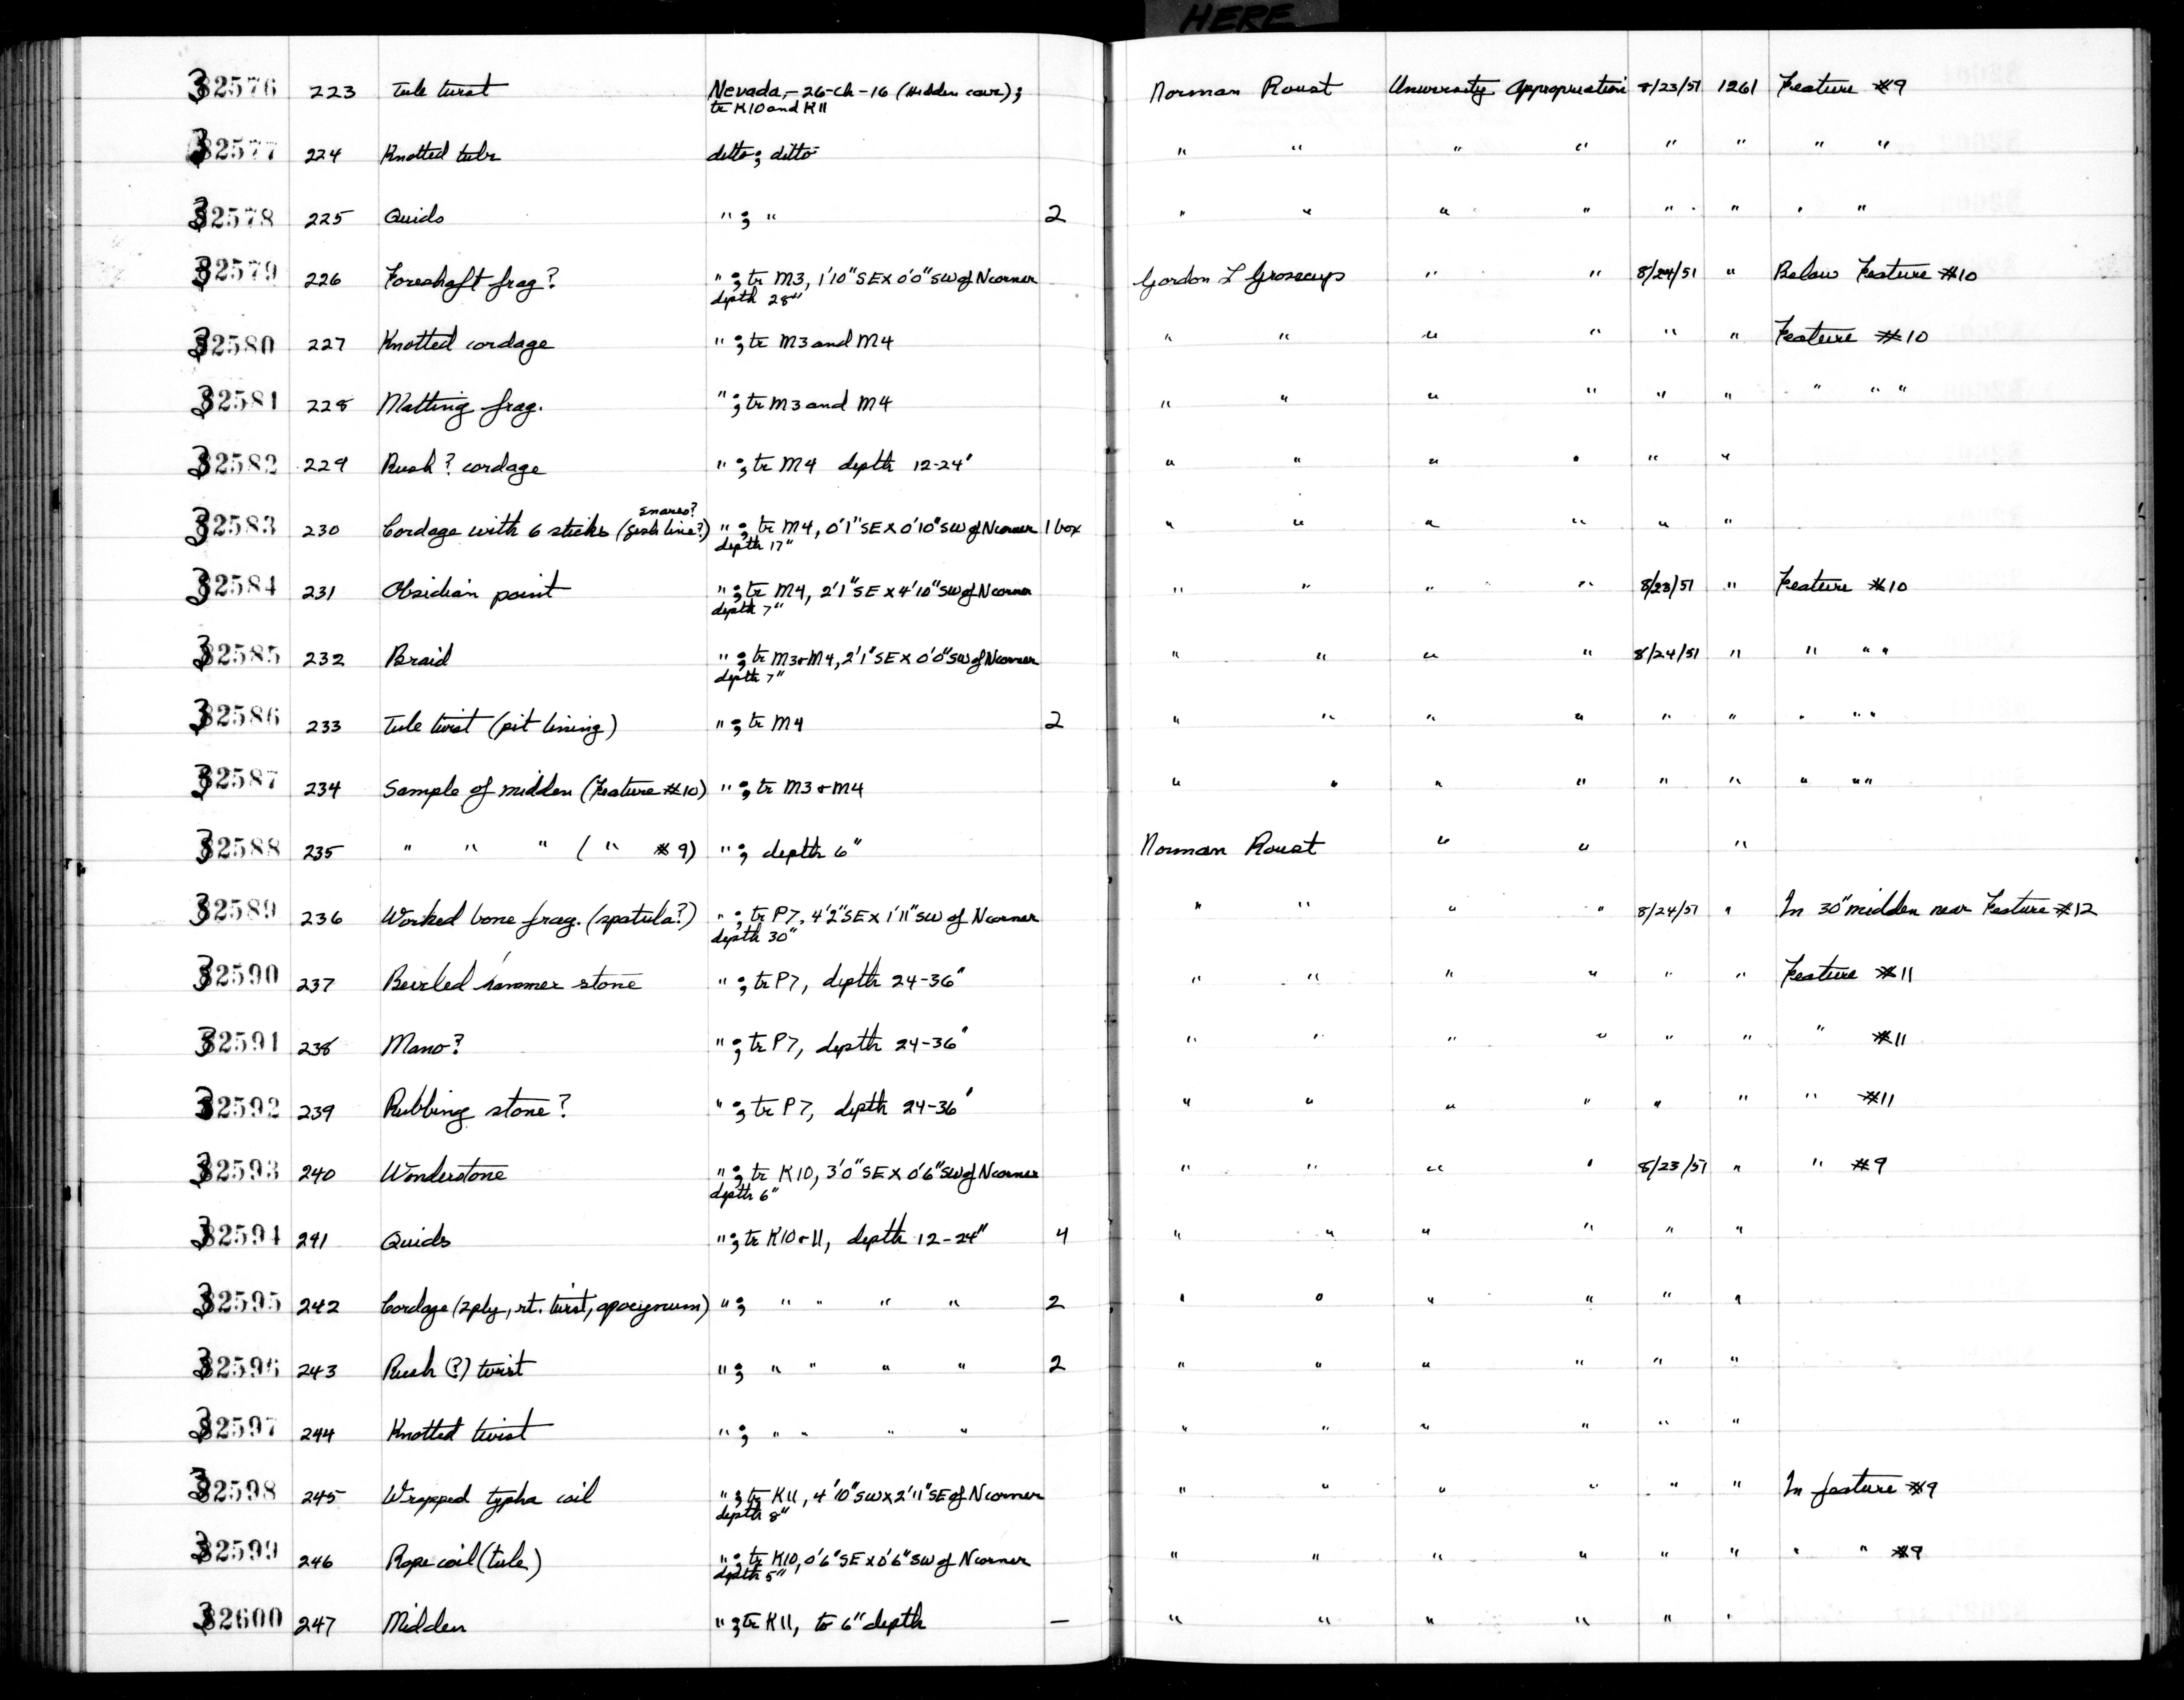 HERE
32576 223 Tule twist Nevada,-26-Ch-16 (Hidden cave); Norman Roust University Appropriation 8/23/51 1261 Feature #9
tr K10 and K11
32577 224 Knotted tule ditto; ditto " " " " " " " "
32578 225 Quids " ; " 2 " " " " " " " "
32579 226 Foreshaft frag? " ; tr M3, 1'10" SE x 0'0" SW of N corner Gordon L Grosscup " " 8/24/51 " Below Feature #10
depth 28"
32580 227 Knotted cordage " ; tr M3 and M4 " " " " " " Feature #10
32581 228 Matting frag. " ; tr M3 and M4 " " " " " " " " "
32582 229 Rush? cordage " ; tr M4 depth 12-24" " " " " " "
snares?
32583 230 Cordage with 6 sticks (fish line?) " ; tr M4, 0'1" SE x 0'10" SW of N corner 1 box " " " " " "
depth 17"
32584 231 Obsidian point " ; tr M4, 2'1" SE x 4'10" SW of N corner " " " " 8/23/51 " Feature #10
depth 7"
32585 232 Braid " ; tr M3+M4, 2'1" SE x 0'0" SW of N corner " " " " 8/24/51 " " " "
depth 7"
32586 233 Tule twist (pit lining) " ; tr M4 2 " " " " " " " " "
32587 234 Sample of midden (Feature #10) " ; tr M3+M4 " " " " " " " " "
32588 235 " " " ( " #9) " ; depth 6" Norman Roust " " "
32589 236 Worked bone frag. (spatula?) " ; tr P7, 4'2" SE x 1'11" SW of N corner " " " " 8/24/51 " In 30" midden near Feature #12
depth 30"
32590 237 Beveled hammer stone " ; tr P7, depth 24-36" " " " " " " Feature #11
32591 238 Mano? " ; tr P7, depth 24-36" " " " " " " " #11
32592 239 Rubbing stone? " ; tr P7, depth 24-36" " " " " " " " #11
32593 240 Wonderstone " ; tr K10, 3'0" SE x 0'6" SW of N corner " " " " 8/23/51 " " #9
depth 6"
32594 241 Quids " ; tr K10+11, depth 12-24" 4 " " " " " "
32595 242 Cordage (2ply, rt. twist, apocynum) " ; " " " " 2 " " " " " "
32596 243 Rush (?) twist " ; " " " " 2 " " " " " "
32597 244 Knotted twist " ; " " " " " " " " " "
32598 245 Wrapped typha coil " ; tr K11, 4'10" SW x 2'11" SE of N corner " " " " " " In feature #9
depth 8"
32599 246 Rope coil (tule) " ; tr K10, 0'6" SE x 0'6" SW of N corner " " " " " " " " #9
depth 5"
32600 247 Midden " ; tr K11, to 6" depth — " " " " " "